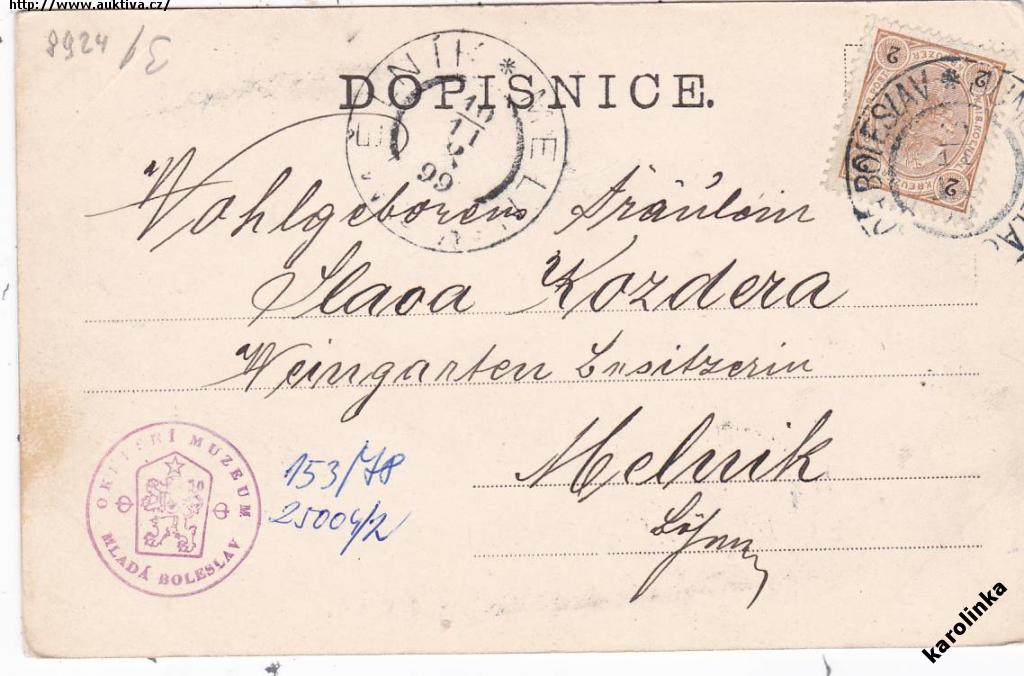 http://www.auktiva.cz/
8924/E
DOPISNICE.
MĚLNÍK * MELNIK
10
11
99
2
KREUZER
2
BOLESLAV *
Wohlgeborens Fräulein
Slava Kozdera
Weingarten Besitzerin
Melnik
Böhmen
OKRESNÍ MUZEUM
MLADÁ BOLESLAV
153/78
25004/2
karolinka